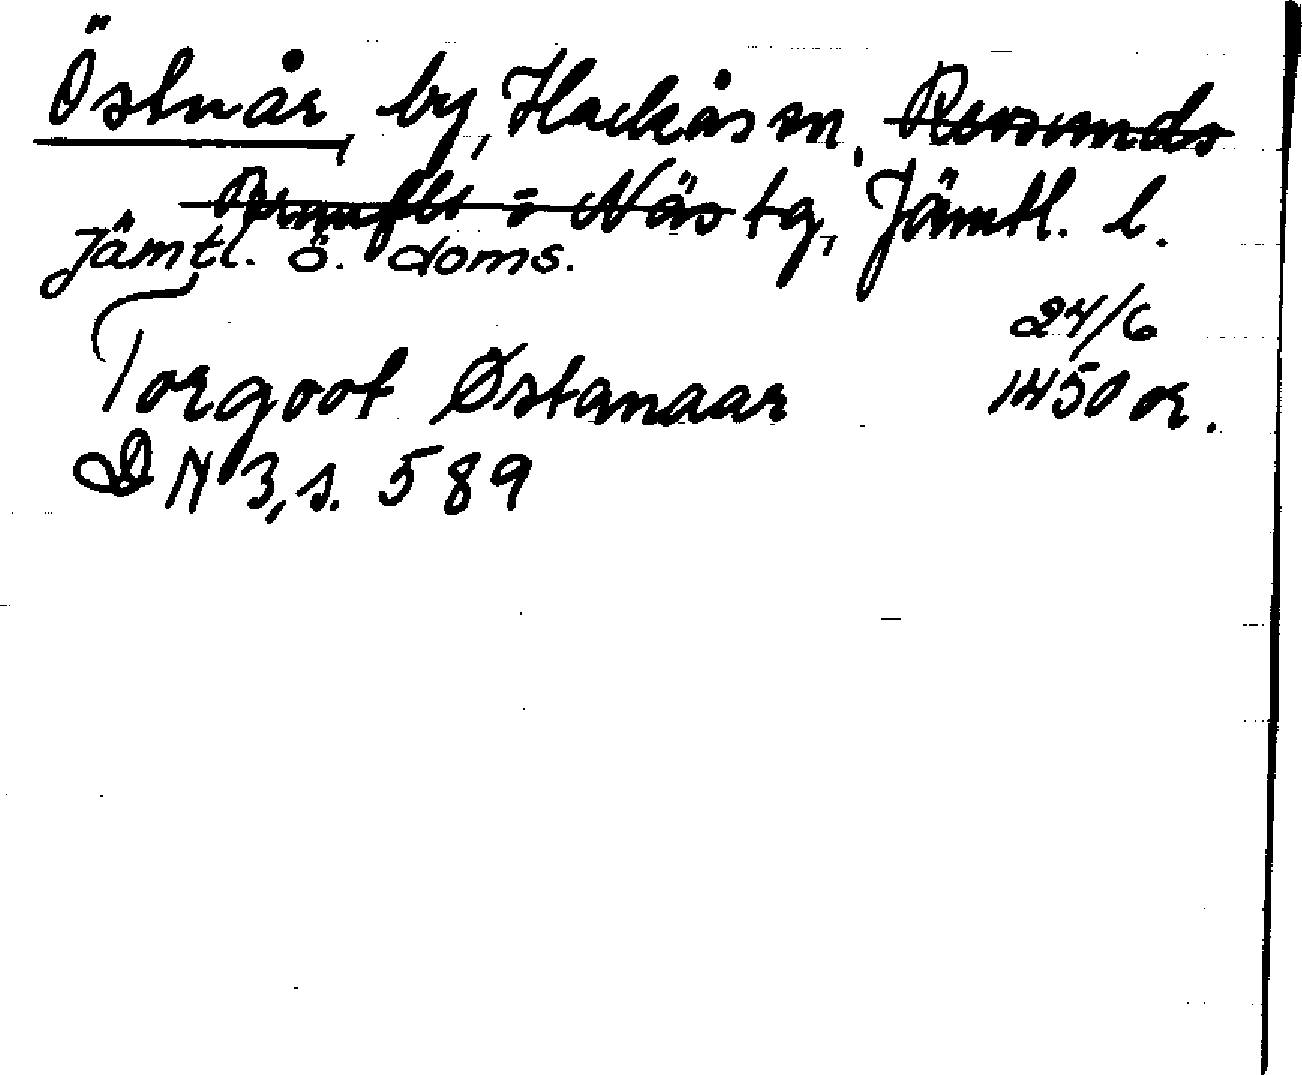 Östnår, by, Hackås sn, Revsunds
Brunflo o Näs tg, Jämtl. l.
Jämtl. ö. doms.
24/6
Torgoot Østanaar 1450 or.
DN 3, s. 589